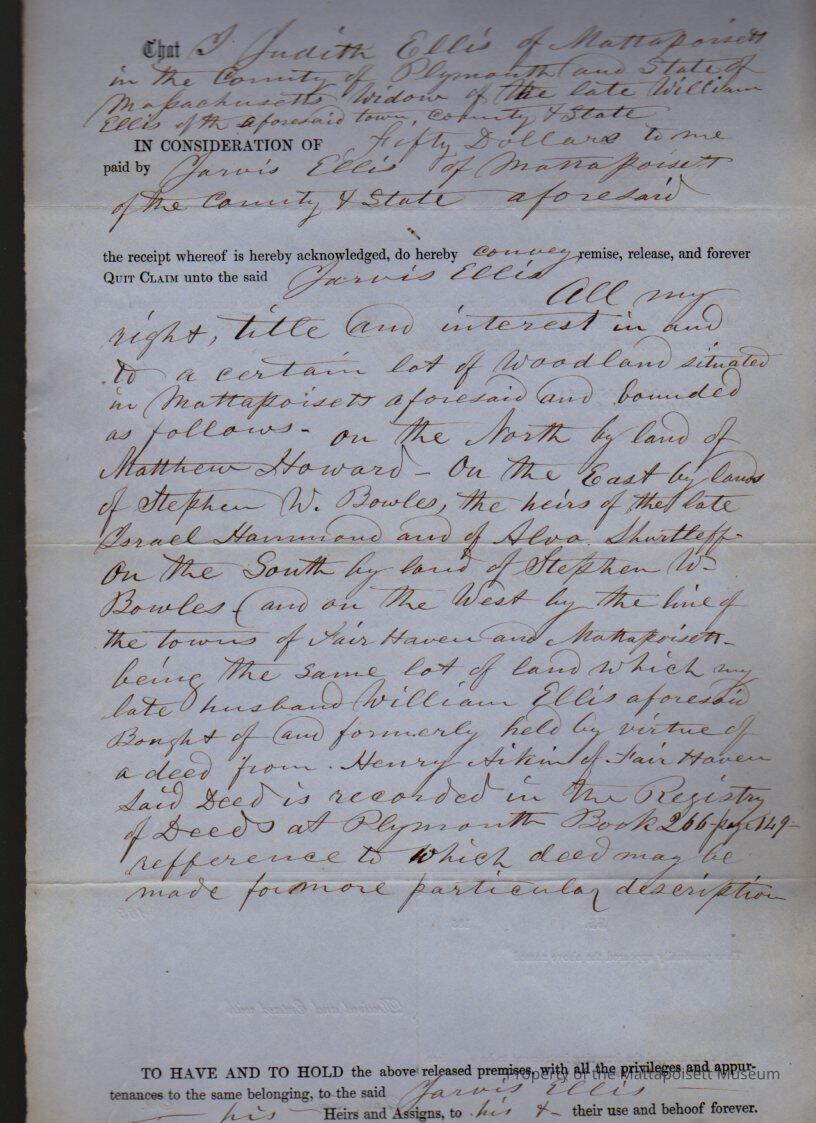 That I Judith Ellis of Mattapoisett
in the County of Plymouth and State of
Massachusetts Widow of the late William
Ellis of th aforesaid town, County & State
IN CONSIDERATION OF Fifty Dollars to me
paid by Jarvis Ellis of Mattapoisett
of the County & State aforesaid
the receipt whereof is hereby acknowledged, do hereby convey remise, release, and forever
QUIT CLAIM unto the said Jarvis Ellis
All my
right, title and interest in and
to a certain lot of Woodland situated
in Mattapoisett aforesaid and bounded
as follows - on the North by land of
Matthew Howard - On the East by lands
of Stephen W. Bowles, the heirs of the late
Israel Hammond and of Alva Shurtleff -
On the South by land of Stephen W.
Bowles - and on the West by the line of
the towns of Fair Haven and Mattapoisett -
being the same lot of land which my
late husband William Ellis aforesaid
Bought of and formerly held by virtue of
a deed from Henry Aikin of Fair Haven
Said Deed is recorded in the Registry
of Deeds at Plymouth Book 266 page 149 -
refference to which deed may be
made for more particular description
TO HAVE AND TO HOLD the above released premises, with all the privileges and appur-
tenances to the same belonging, to the said Jarvis Ellis
his Heirs and Assigns, to his & their use and behoof forever.
Property of the Mattapoisett Museum